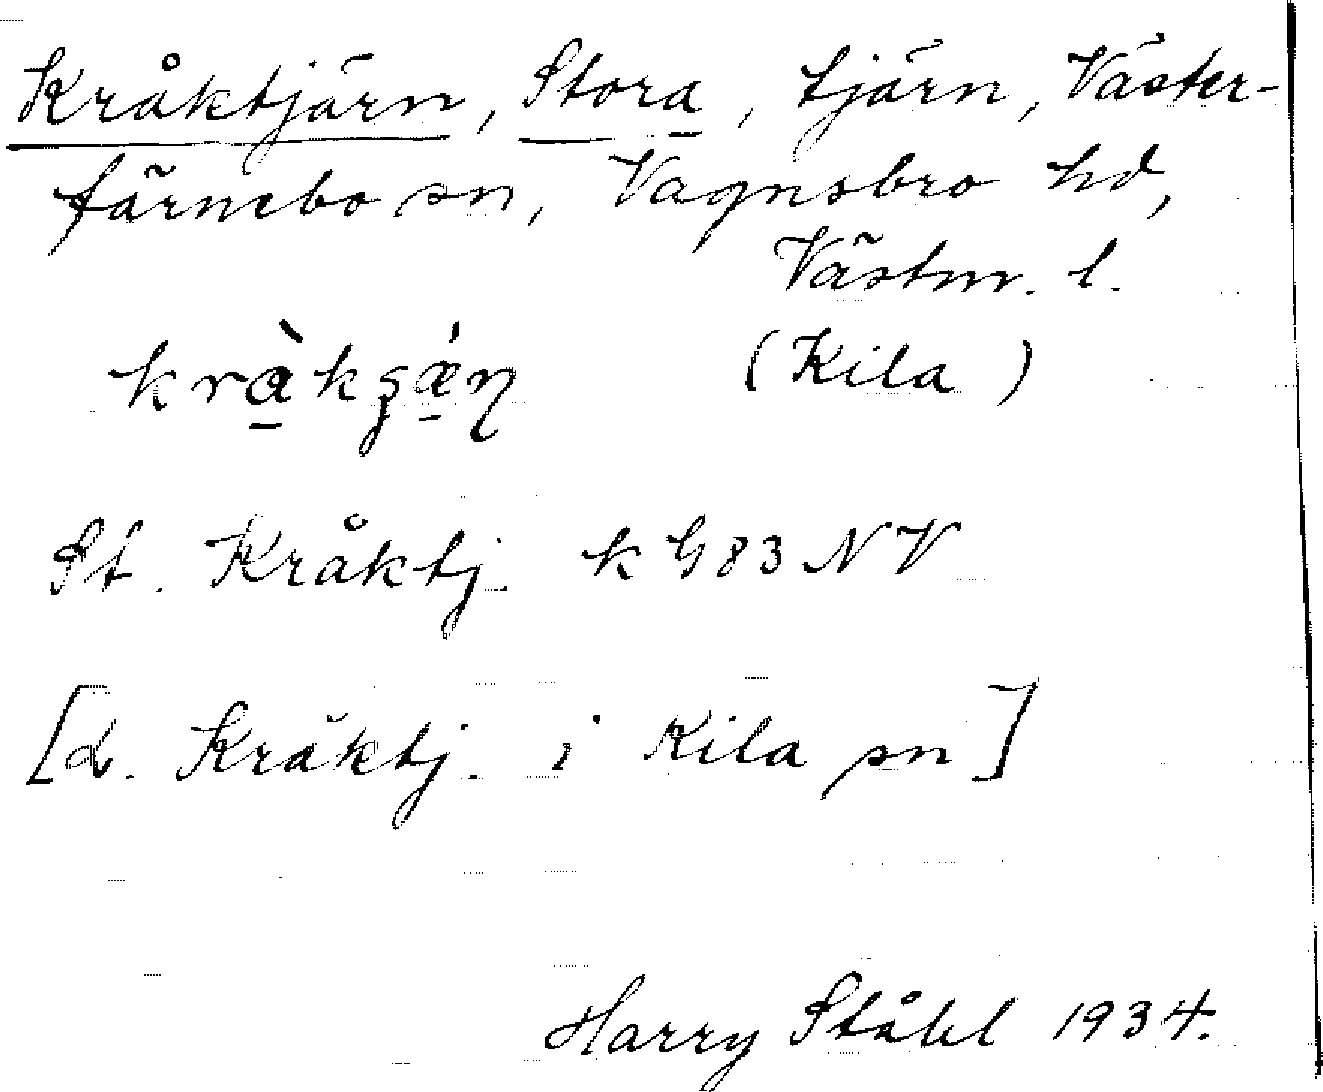 Kråktjärn, Stora, tjärn, Väster-
färnebo sn, Vagnsbro hd,
Västm. l.
kràkʂǽɳ (Kila)
St. Kråktj. k G83NV
[L. Kråktj. i Kila sn]
Harry Ståhl 1934.